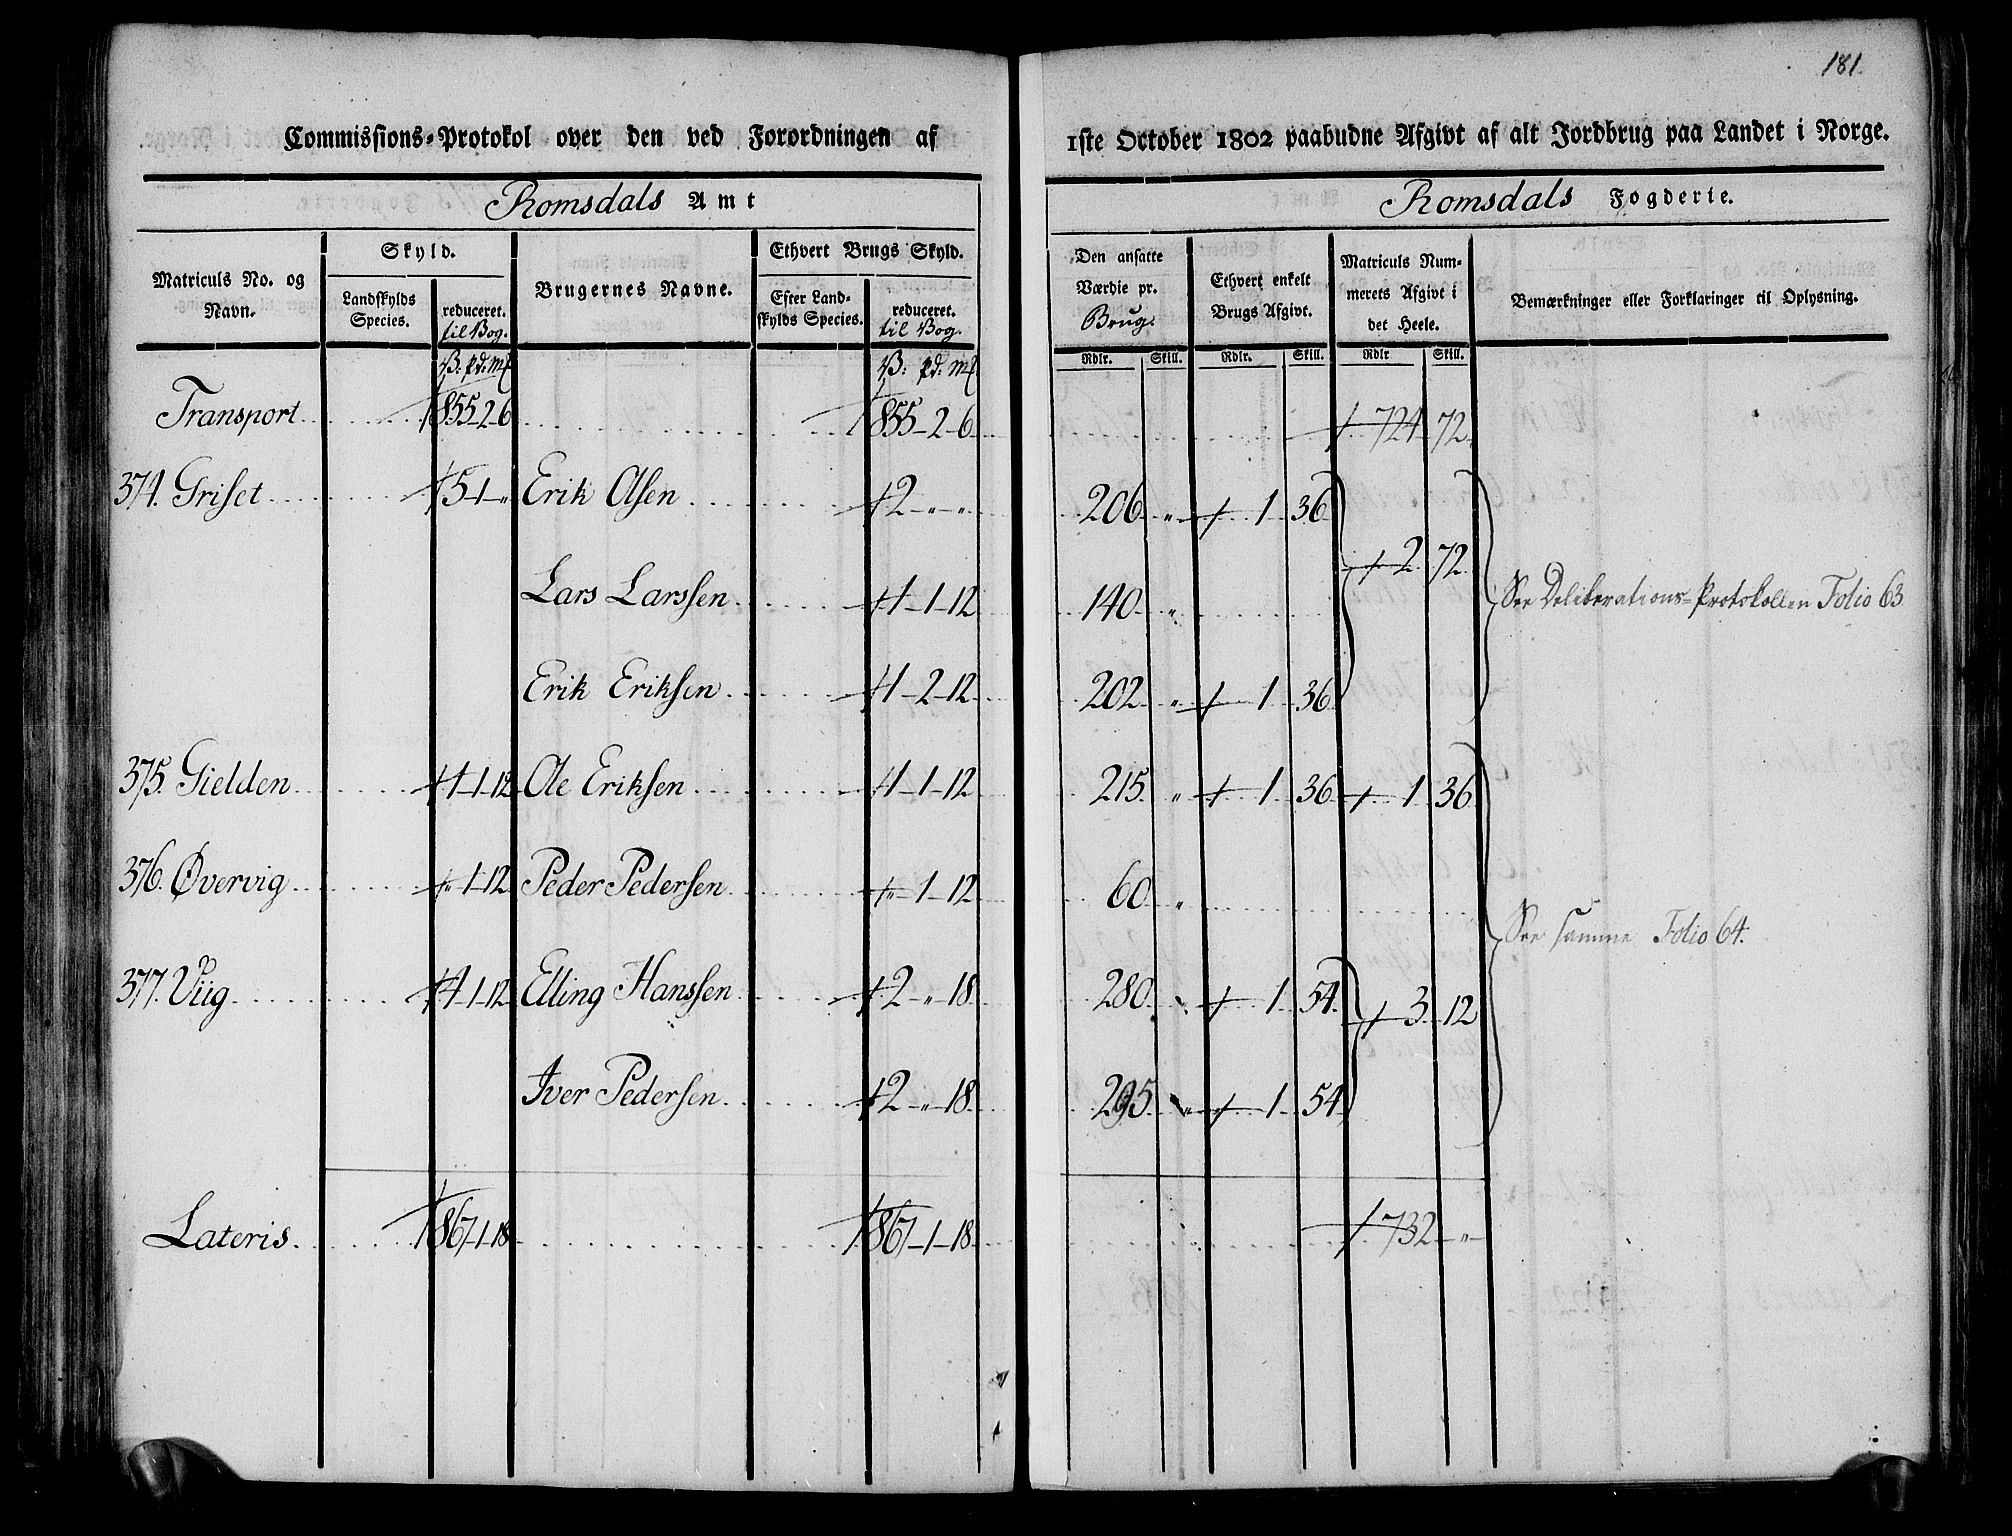 181.
Commissions-Protokol over den ved Forordningen af 1ste October 1802 paabudne Afgivt af alt Jordbrug paa Landet i Norge.
Romsdals Amt Romsdals Fogderie.
Matriculs No. og Navn. Skyld. Landskylds Species. reduceret. til Bog. Brugernes Navne. Ethvert Brugs Skyld. Efter Landskylds Species. reduceret. til Bog. Den ansatte Værdie pr. Brug. Ethvert enkelt Brugs Afgivt. Matriculs Nummerets Afgivt i det Heele. Bemærkninger eller Forklaringer til Oplysning.
V: pd: mk V: pd: mk Rdlr. Skill. Rdlr. Skill. Rdlr Skill.
Transport 855-2-6 855-2-6 724 72
374. Griset 5-1-" Erik Olsen 2-"-" 206 " 1 36 2 72
Lars Larssen 1-1-12 140 " See Deliberations-Protokollen Folio 63
Erik Eriksen 1-2-12 202 " 1 36
375. Gielden 1-1-12 Ole Eriksen 1-1-12 215 " 1 36 1 36
376. Øvervig "-1-12 Peder Pedersen "-1-12 60 " See samme Folio 64.
377. Viig 4-1-12 Elling Hanssen 2-"-18 280 " 1 54 3 12
Iver Pedersen 2-"-18 295 " 1 54
Lateris 867-1-18 867-1-18 732 "